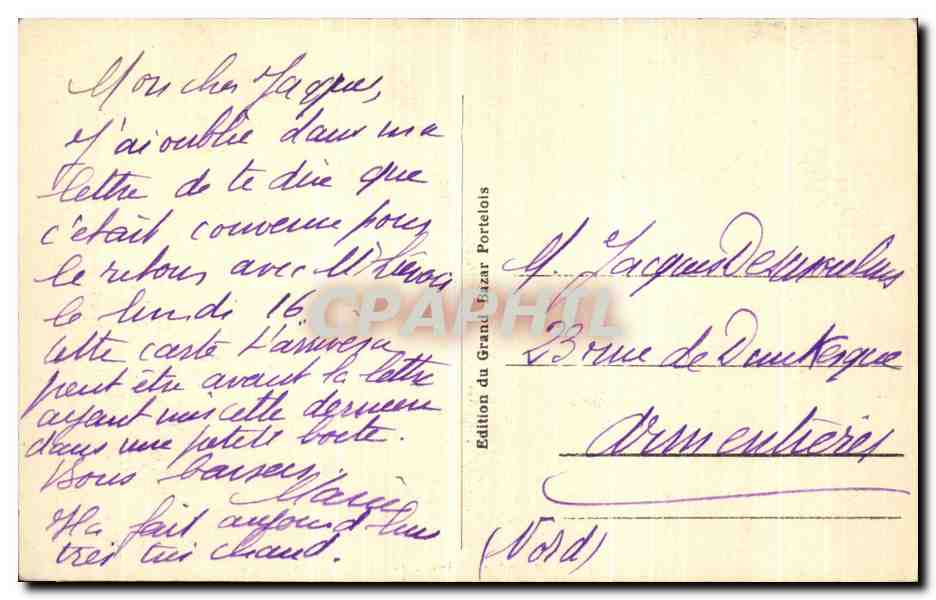 Mon cher Jacques,
J'ai oublié dans ma
lettre de te dire que
c'était convenu pour
le retour avec Mr
le lundi 16
cette carte t'arrivera
peut être avant la lettre
ayant mis cette dernière
dans une petite boîte.
Bons baisers.
Marie
Il a fait aujourd'hui
très très chaud.
Edition du Grand Bazar Portelois
M. Jacques Desmoulins
23 rue de Dunkerque
Armentières
(Nord)
CPAPHIL